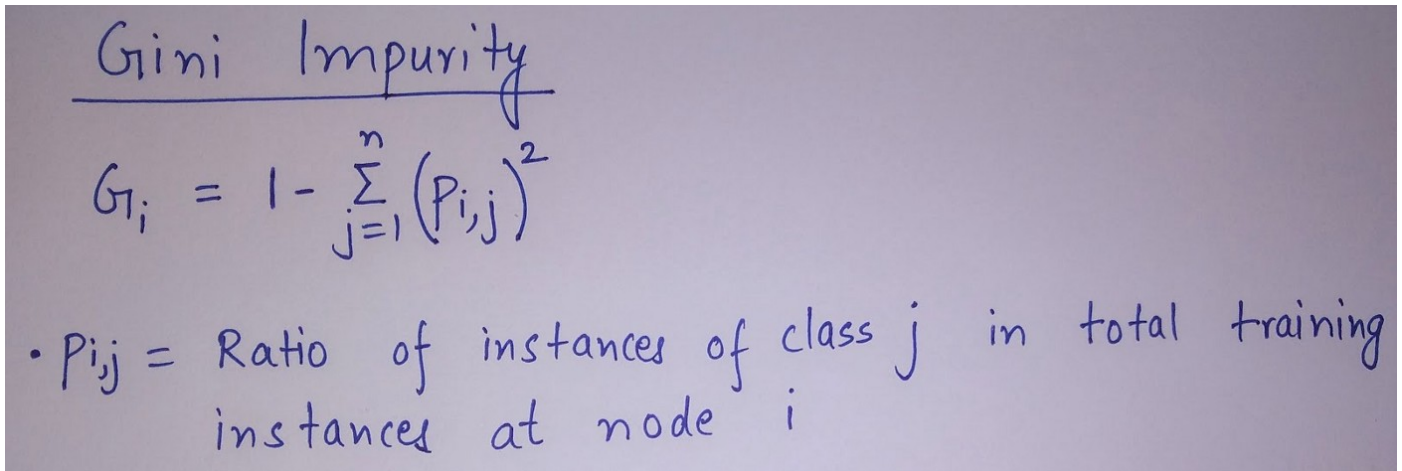 Gini Impurity
Gi = 1 - Σⁿj=1 (Pi,j)²
• Pi,j = Ratio of instances of class j in total training
instances at node i